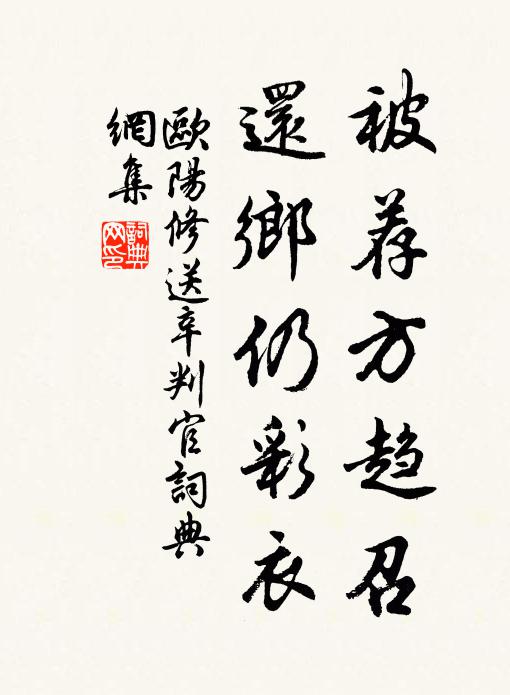 被荐方趋召
還鄉仍彩衣
歐陽修送辛判官詞典
網集
詞典网印